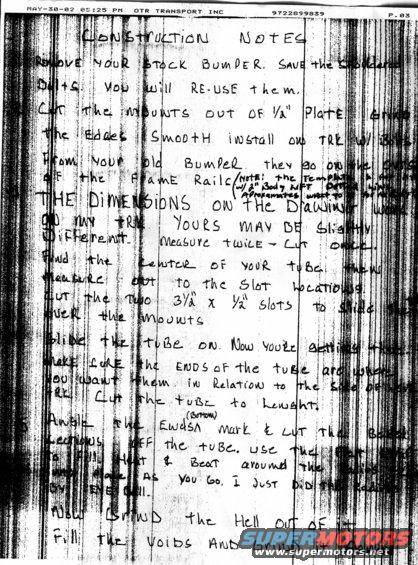 MAY-30-02 05:25 PM OTR TRANSPORT INC 9722899839 P.03
CONSTRUCTION NOTES
REMOVE YOUR STOCK BUMPER. SAVE the
Bolts you will RE-USE them.
Cut the mounts out of 1/2" Plate Grind
the Edges Smooth install on TRK w/ Bolts
From your old Bumper they go on the
of the Frame Rails (NOTE: the Template is
w/ 2" Body Lift
THE DIMENSIONS ON THE DRAWING WORK
ON MY TRK YOURS MAY BE Slightly
Different. Measure twice - Cut once.
Find the Center of your tube. then
Measure out to the Slot Locations
Cut the Two 3 1/2" x 1/2" slots to Slide the
over the mounts
Slide the tube on. Now you're getting
MAKE SURE the ENDS of the tube are where
you want them in Relation to the Side of
TRK Cut the tube to Lenght.
Angle the Ends (Bottom) Mark & Cut the
Sections off the tube. use the
to Fill Heat & Beat around the
As you Go. I Just Did the
BY
Now Grind the Hell out of it
Fill the voids AND
SUPERMOTORS
www.supermotors.net